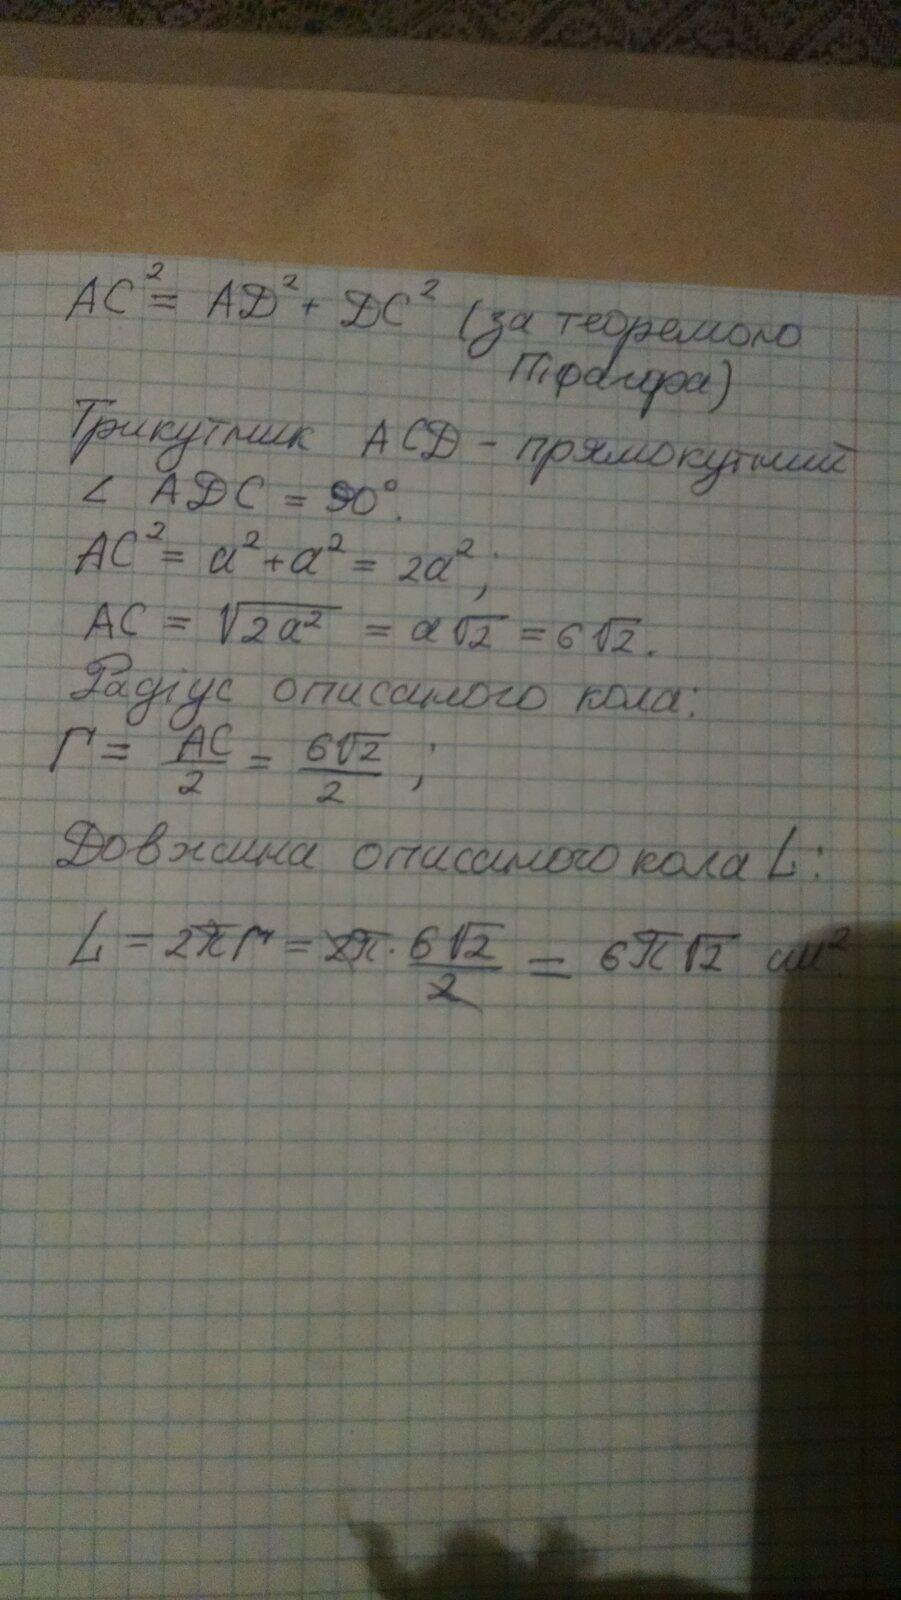 AC² = AD² + DC² (за теоремою
Піфагора)
Трикутник ACD - прямокутний
< ADC = 90°.
AC² = a² + a² = 2a²;
AC = √2a² = a√2 = 6√2.
Радіус описаного кола:
r = AC/2 = 6√2/2 ;
Довжина описаного кола L:
L = 2πr = 2π · 6√2/2 = 6π√2 см²